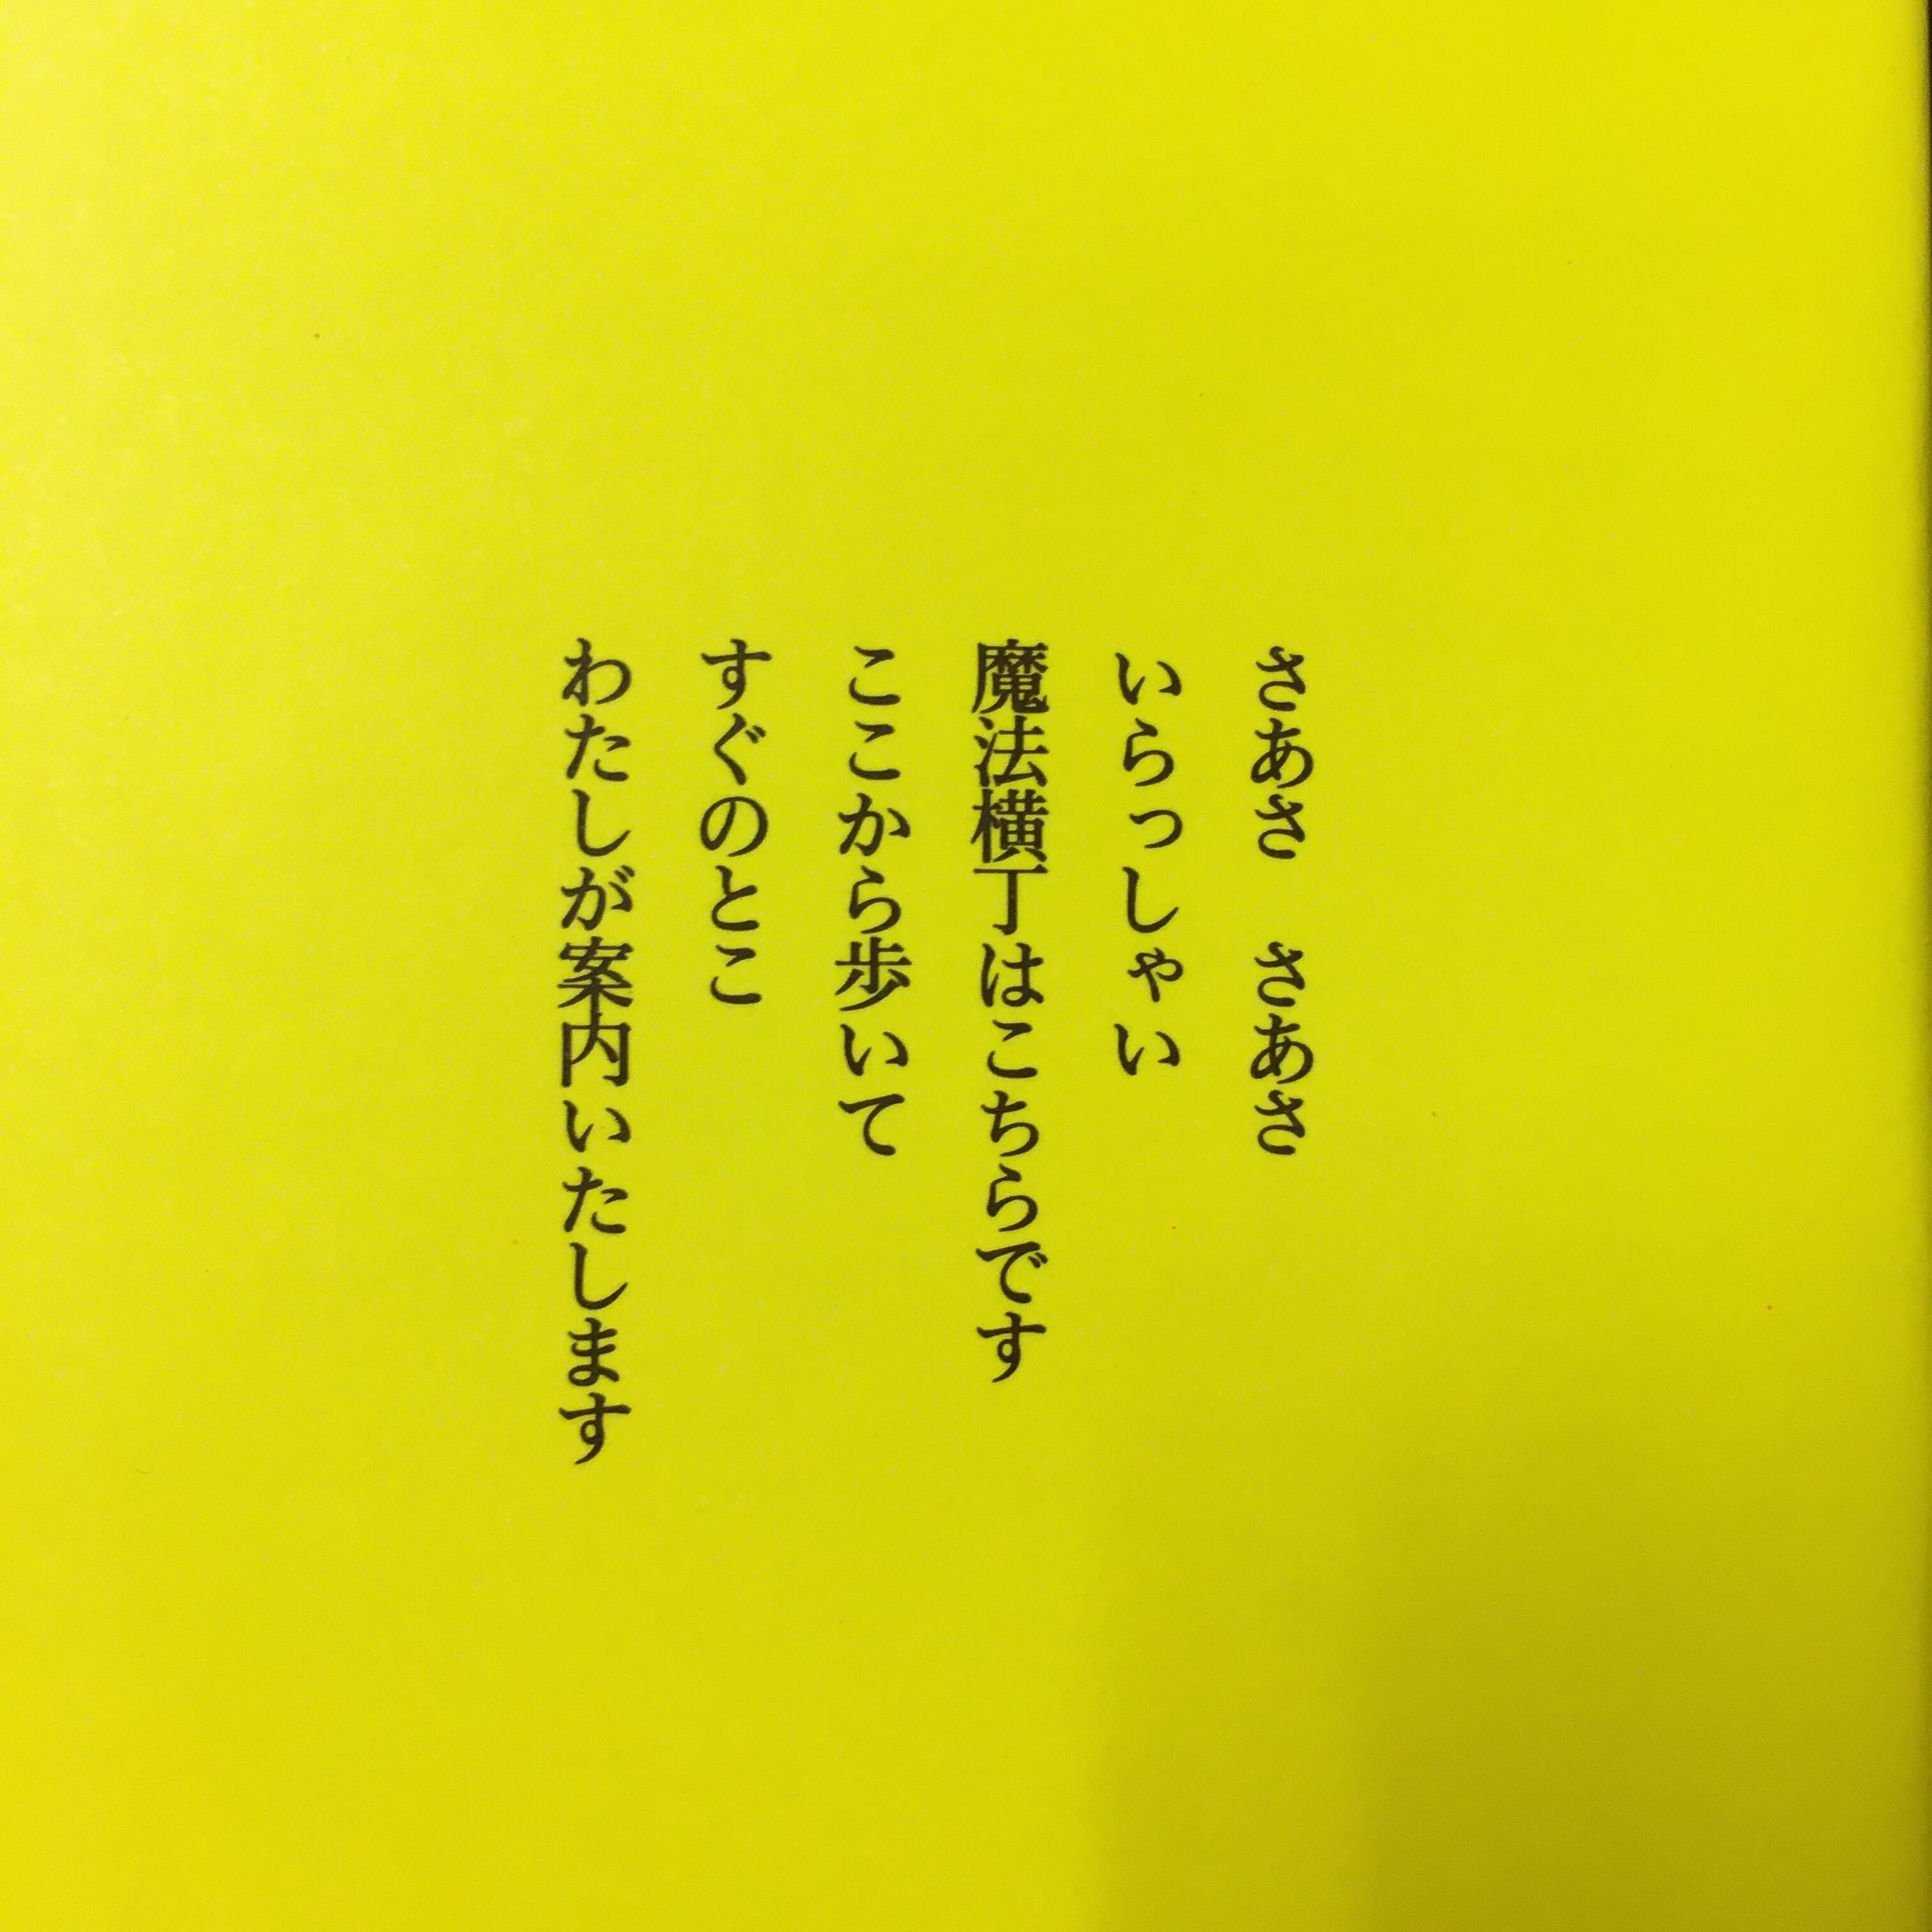 さあさ　さあさ
いらっしゃい
魔法横丁はこちらです
ここから歩いて
すぐのとこ
わたしが案内いたします